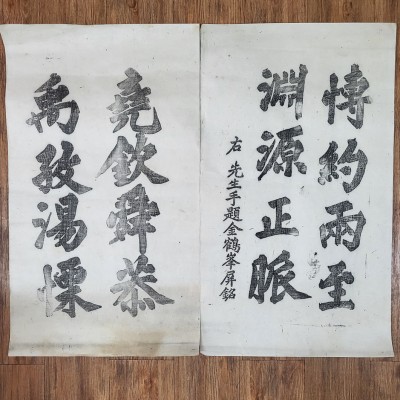 愽約兩至
淵源正脈
右 先生手題金鶴峯屏銘
堯欽舜恭
禹孜湯慄